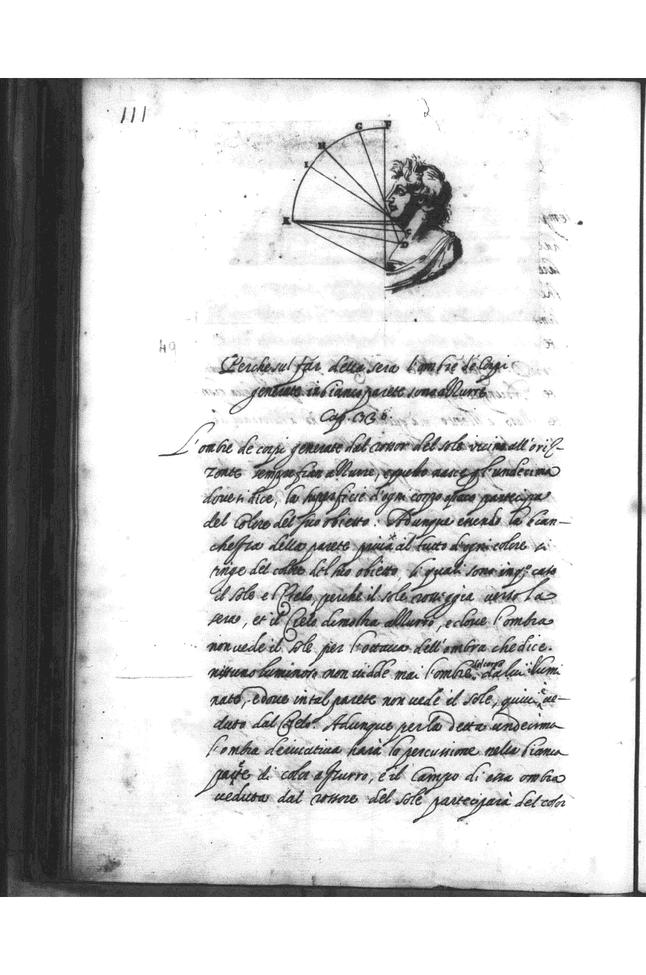 111
2
G F
H
I
K
C
D
49
Perche sul far della sera l'ombre de Corpi
generate in bianca parete sono azzurre
Cap.
L'ombre de corpi generate dal rossor del sole vicino all'oriz-
zonte sempre fian azzurre, e questo nasce p l'undecima
dove si dice, la superficie d'ogni corpo opaco partecipa
del colore del suo obietto. Adunque essendo la bian-
chezza della parete privata al tutto d'ogni colore si
tinge del colore del suo obietto, li quali sono in q.º caso
il sole e'l Cielo, perche il sole rosseggia verso la
sera, et il Cielo dimostra azzurro, e dove l'ombra
non vede il sole per l'ottava dell'ombra che dice.
nissuno luminoso non vidde mai l'ombre del corpo da lui illumi
nato, e dove in tal parete non vede il sole, quivi è ve-
duto dal Cielo. Adunque per la detta undecima
l'ombra derivativa harà la percussione nella bianca
parete di color azzurro, e'l Campo di essa ombra
veduta dal rossore del sole participarà del color